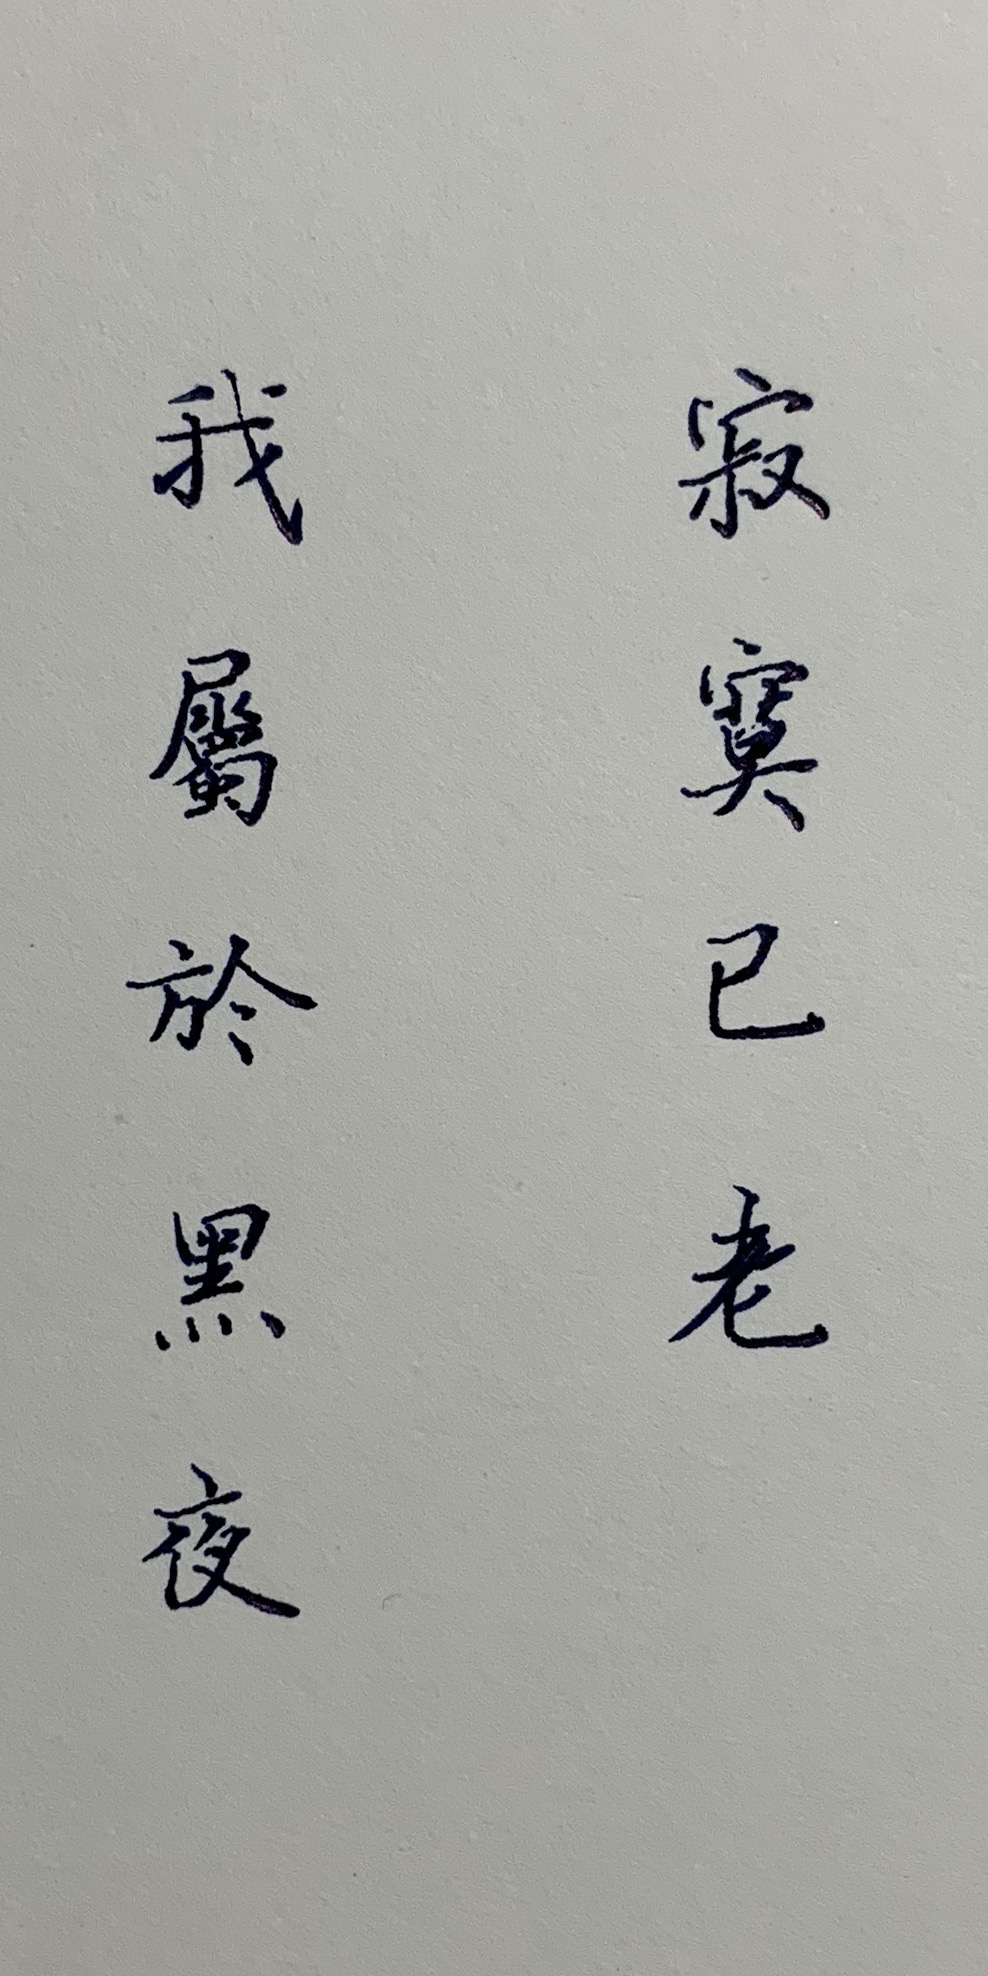 寂寞已老
我屬於黑夜